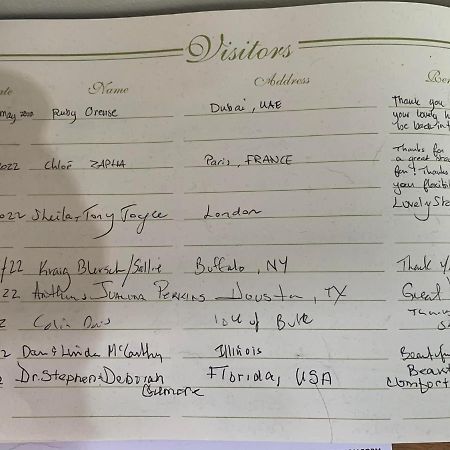 Visitors
Name Address
Ruby Orense Dubai, UAE Thank you
your lovely
be back in
2022 Chloé ZAPHA Paris, FRANCE Thanks for
a great
for! Thanks
your flexibil
022 Sheila, Tony Joyce London Lovely Sta
/22 Kraig Blersch/Sallie Buffalo, NY Thank y
22 Perkins Houston, TX Great
2 Colin of
2 Dan & Linda McCarthy Illinois Beautifu
Dr. Stephen & Deborah Florida, USA Beaut
Gilmore Comfort